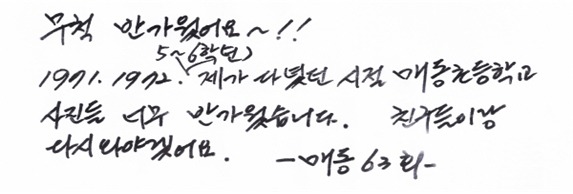 무척 반가웠어요~!!
5~6학년)
1971. 1972. 제가 다녔던 시절 매동초등학교
사진들 너무 반가웠습니다. 친구들이랑
다시 와야겠어요. -매동 63회-